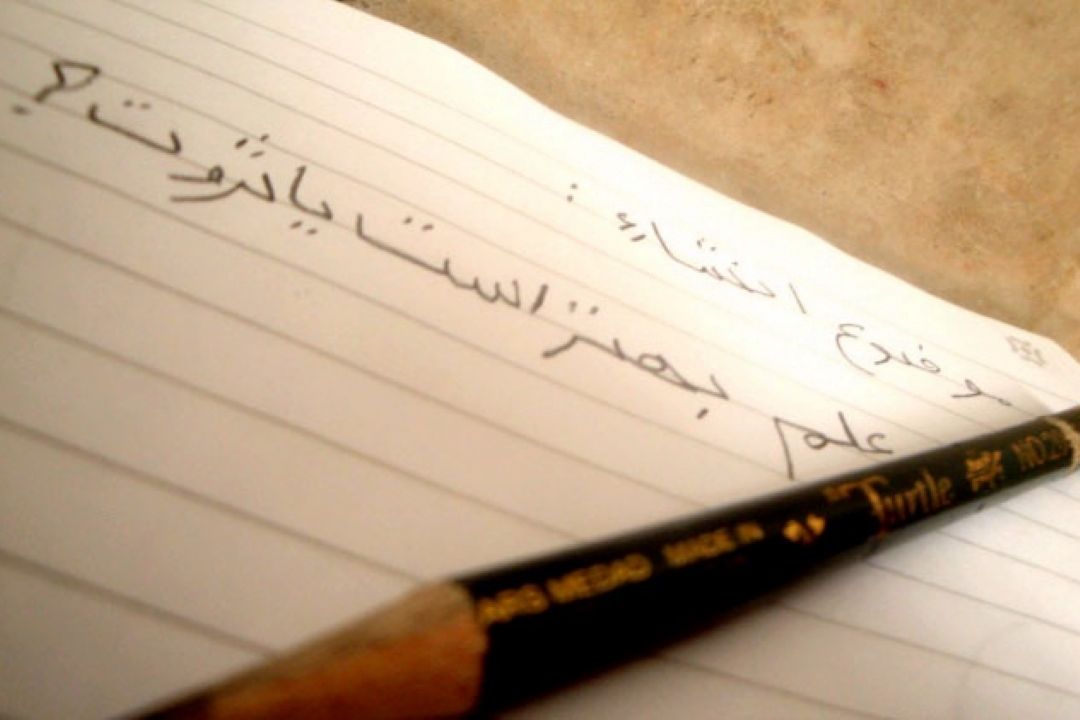 موضوع انشاء :
علم بهتر است یا ثروت ؟
ARS MEDAD MADE IN Turtle